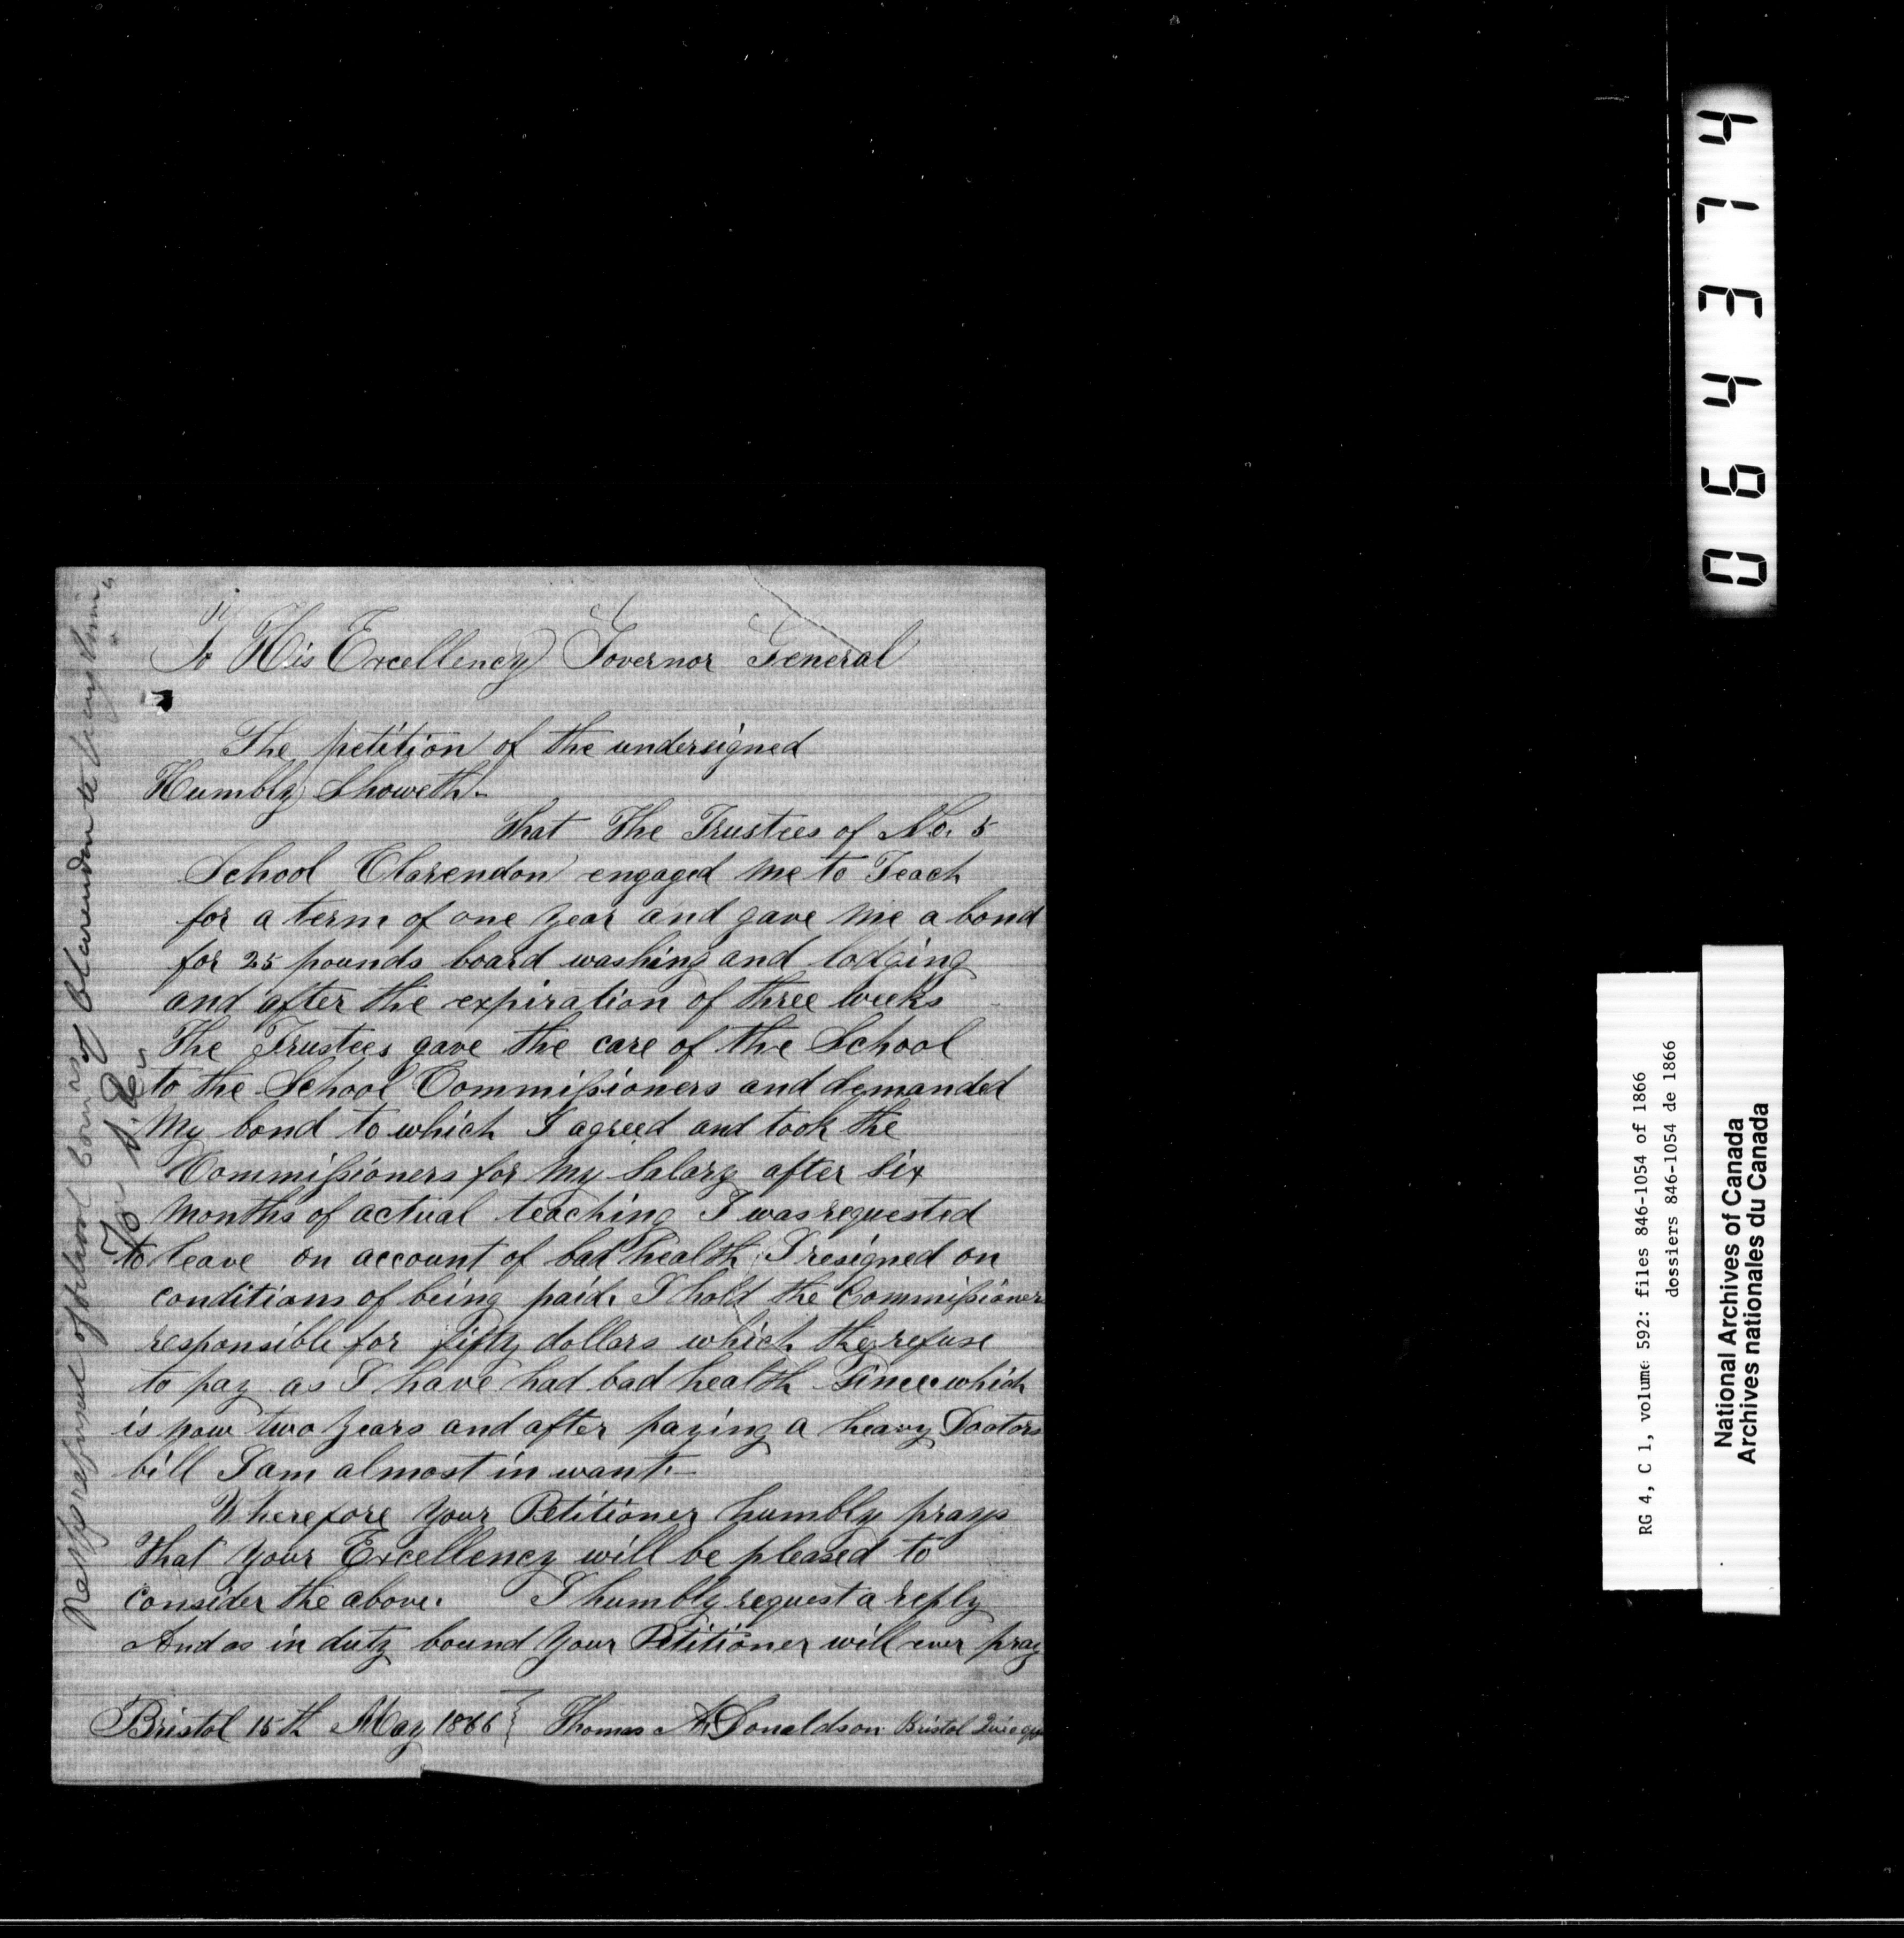 To His Excellency Governor General
The petition of the undersigned
Humbly Showeth.-
That The Trustees of No. 5
School Clarendon engaged me to Teach
for a term of one year and gave me a bond
for 25 pounds board washing and lodging
and after the expiration of three weeks
The Trustees gave the care of the School
to the School Commissioners and demanded
My bond to which I agreed and took the
Commissioners for my Salary after Six
months of actual teaching I was requested
to leave on account of bad health I resigned on
conditions of being paid. I hold the Commissioners
responsible for fifty dollars which the refuse
to pay as I have had bad health Since which
is now two years and after paying a heavy Doctors
bill I am almost in want.-
Wherefore your Petitioner humbly prays
that your Excellency will be pleased to
consider the above. I humbly request a reply
And as in duty bound your Petitioner will ever pray
Bristol 15th May 1866 } Thomas Donaldson Bristol
refusal of School of Clarendon to pay him
For
0 6 4 3 7 4
RG 4, C 1, volume 592: files 846-1054 of 1866
dossiers 846-1054 de 1866
National Archives of Canada
Archives nationales du Canada